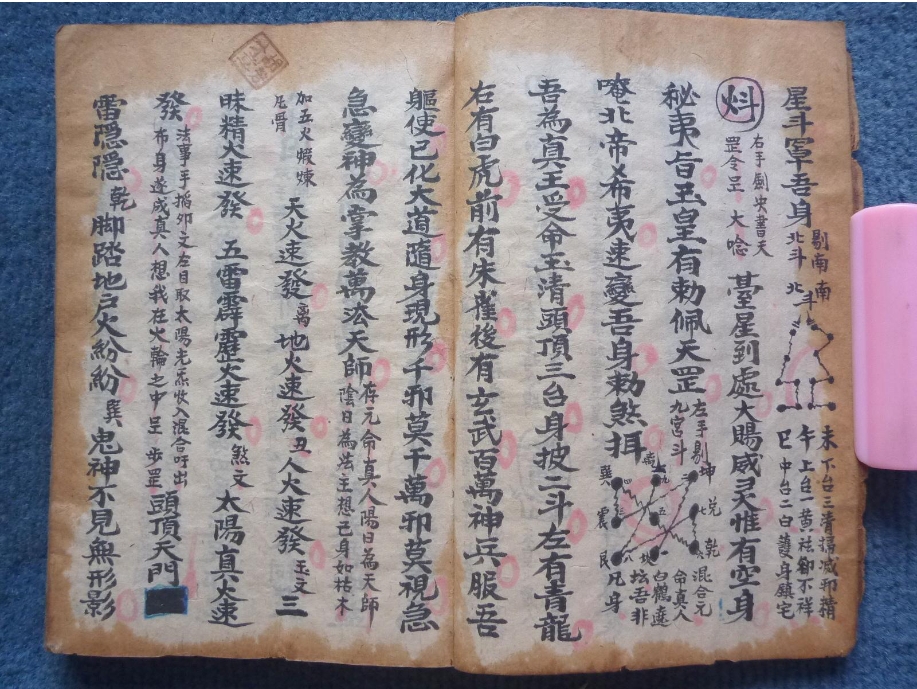 星斗罩吾身 北斗 剔南 北斗 南
未下台三青掃滅邪精
午上台一黄祛卻不祥
巳中台二白護身鎮宅
右手劍訣書天
罡令呈 大唸 臺星到處大賜威灵惟有空身
秘夷旨玉皇有勅佩天罡 左手剔
九宮斗
唵北帝希夷速變吾身勅煞摂
坤 兌 乾 離 九 五 坎 巽 震 艮 七 八
混合元
命真人
白鶴遶
坛吾非
凡身
吾為真王受命玉清頭頂三台身披二斗左有青龍
右有白虎前有朱雀後有玄武百萬神兵服吾
軀使已化大道隨身現形千邪莫千萬邪莫視急
急變神為掌教萬法天師 存元命真人陽日為天師
陰日為法主想己身如枯木
加五火煅煉
尪骨 天火速發 离 地火速發 丑 人火速發 玉文 三
昧精火速發 五雷霹靂火速發 煞文 太陽真火速
發 法事手掐卯文左目取太陽光炁收入混合吁出
布身遂成真人想我在火輪之中呈步罡 頭頂天門
雷隠隠 乾 脚踏地戶火紛紛 巽 鬼神不見無形影